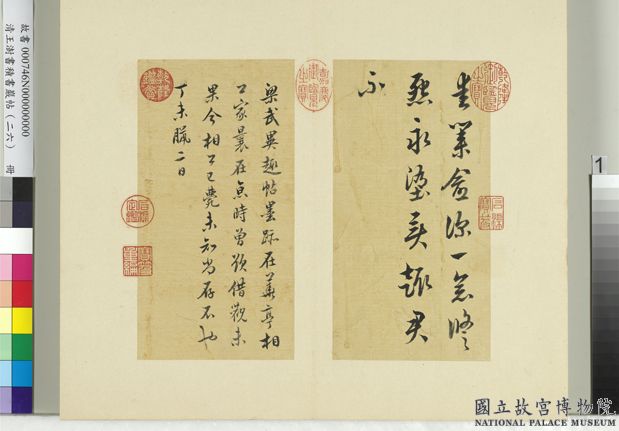 故書 000746N000000000
清王澍書積書巖帖（二六） 冊
愛業愈深一念修
怨永墮異趣君
不
梁武異趣帖墨跡在華亭相
公家曩在京時曾欲借觀未
果今相公已薨未知尚存否也
丁未臘二日
1
國立故宮博物院
NATIONAL PALACE MUSEUM